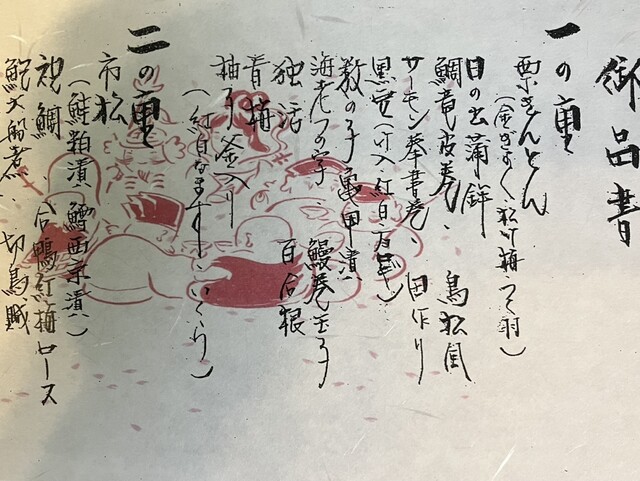 御品書
一の重
栗きんとん
(金ぎょく、松竹梅つく羽)
日の出蒲鉾
鯛竜皮巻、 鳥松風
サーモン奉書巻、 田作り
黒豆(
数の子亀甲漬
海老つの字、 鰻巻玉子
独活 百合根
青梅
柚子釜入り
(紅白なます、いくら)
二の重
市松
(鮭粕漬、鰆西京漬)
祝鯛 合鴨紅梅ロース
鮑大船煮、 切鳥賊